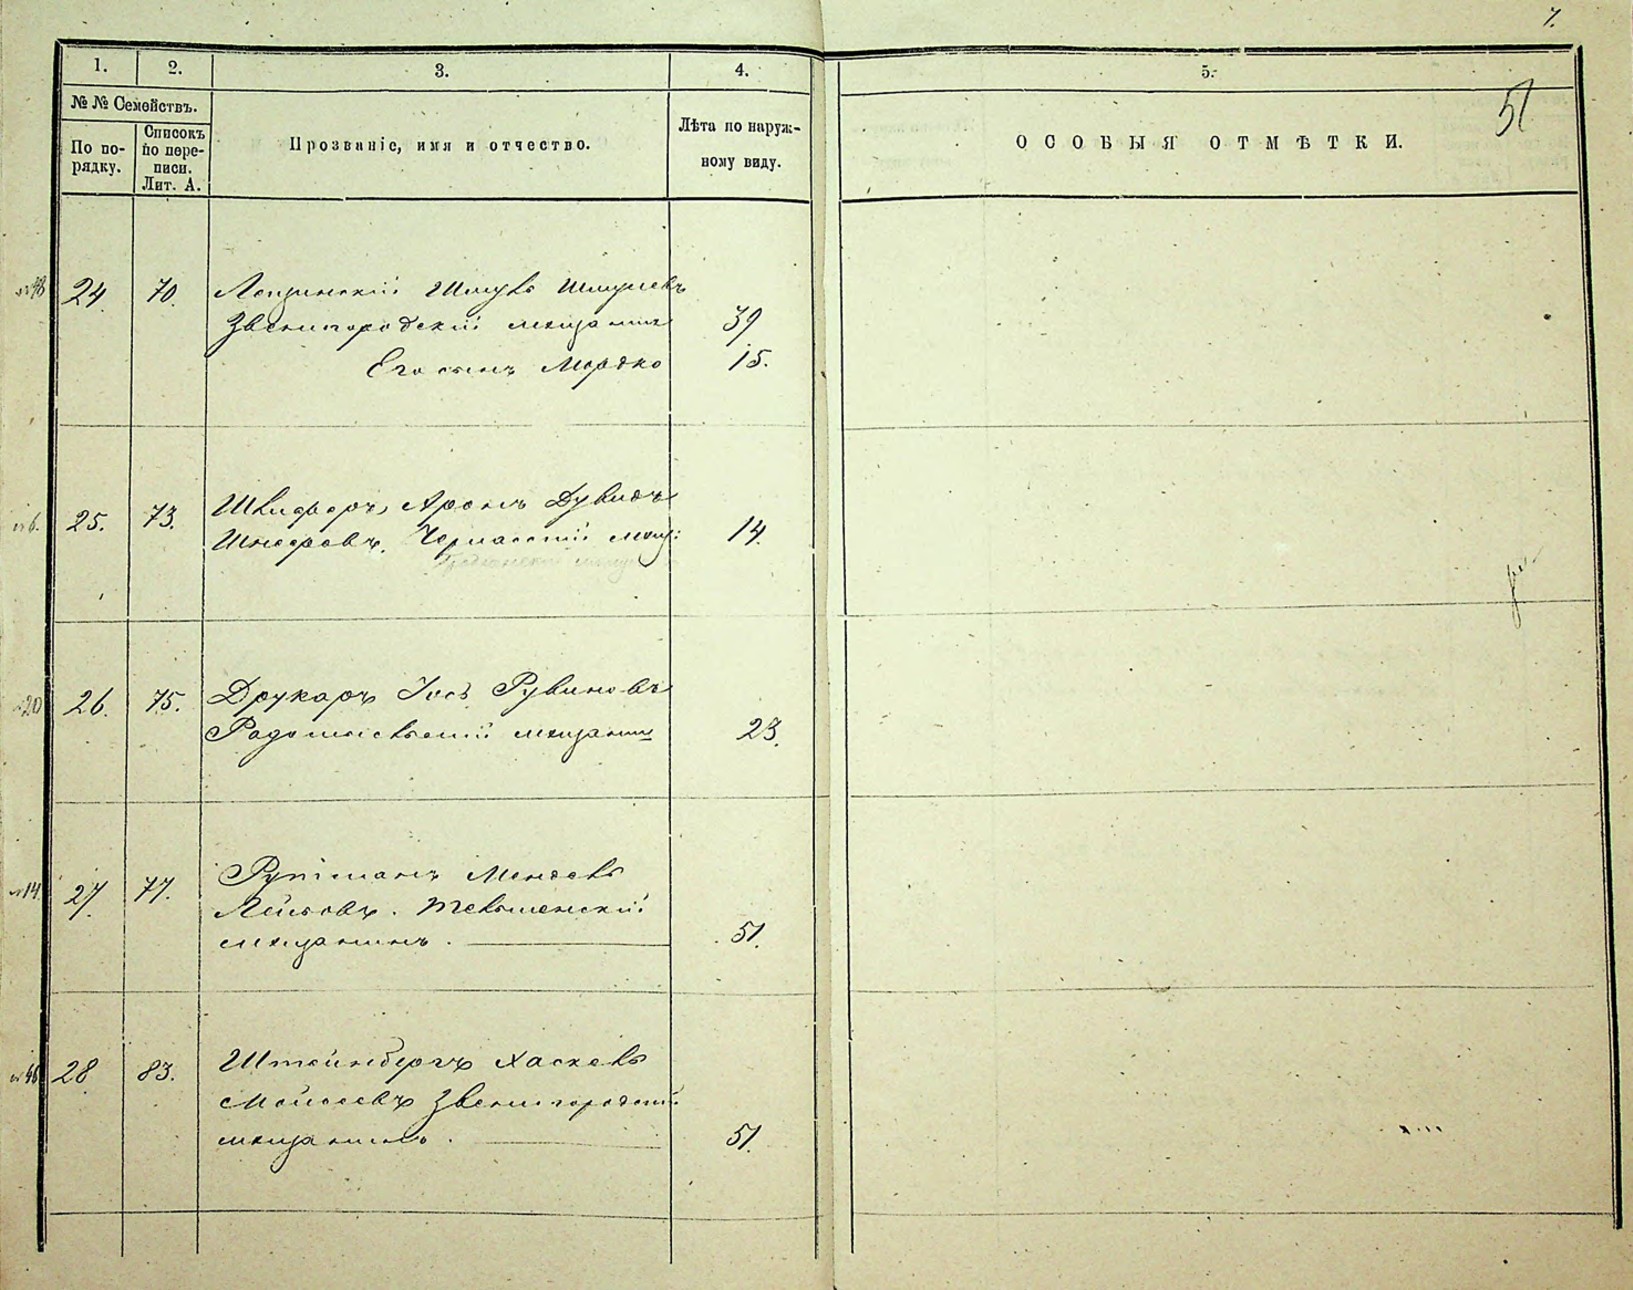 7.
51
1.
2.
3.
4.
5.
№ № Семействъ.
По по-
рядку.
Списокъ
по пере-
писи.
Лит. А.
Прозваніе, имя и отчество.
Лѣта по наруж-
ному виду.
ОСОБЫЯ ОТМѢТКИ.
№48 24. 70. Шмуль Шмулевъ
Звенигородскій мещанинъ 39
Его сынъ Мордко 15.
№6. 25. 73. Аронъ Дувидъ
Шнееровъ. Черкасскій мещ: 14.
№20 26. 75. Друкарь Іось Рувиновъ
Радомысльскій мещанинъ 23.
№14 27. 77. Мендель
Лейбовъ.
мещанинъ. 51.
№46 28. 83. Штейнбергъ Хаскель
Мойсеевъ Звенигородскій
мещанинъ. 51.